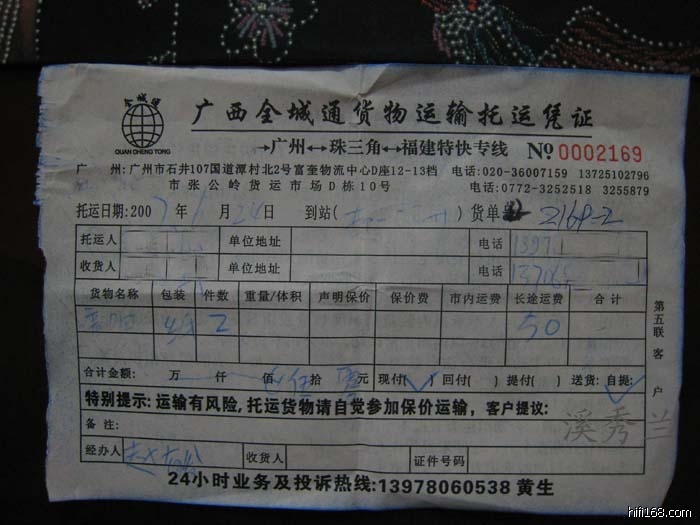 全城通
QUAN CHENG TONG
广西全城通货物运输托运凭证
→广州↔珠三角↔福建特快专线 No 0002169
广 州:广州市石井107国道潭村北2号富奎物流中心D座12-13档 电话:020-36007159 13725102796
市张公岭货运市场D栋10号 电话:0772-3252518 3255879
托运日期:2007年 月24日 到站( ) 货单 2169-2
托运人 单位地址 电话 1397
收货人 单位地址 电话
货物名称 包装 件数 重量/体积 声明保价 保价费 市内运费 长途运费 合计
2 50
合计金额: 万 仟 佰 伍 拾 零 元 现付(✓) 回付( ) 提付( ) 送货: 自提:✓
特别提示:运输有风险,托运货物请自觉参加保价运输,客户提议:
备注:
经办人 收货人 证件号码
24小时业务及投诉热线:13978060538 黄生
第五联 客户
溪秀兰
hifi168.com